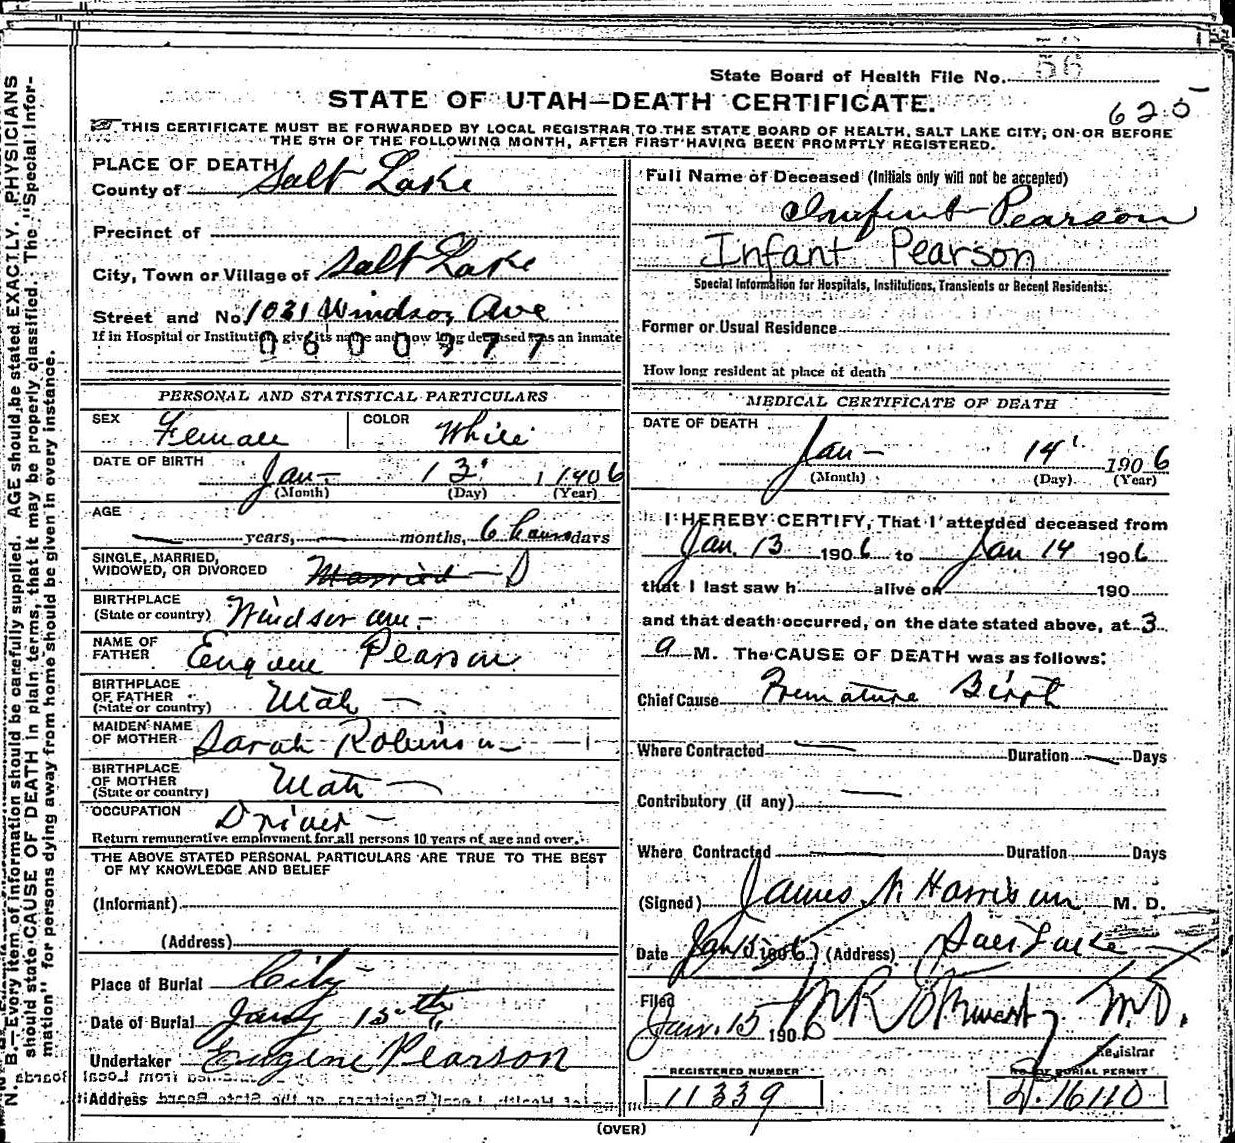 State Board of Health File No. 56
STATE OF UTAH—DEATH CERTIFICATE.
620
THIS CERTIFICATE MUST BE FORWARDED BY LOCAL REGISTRAR TO THE STATE BOARD OF HEALTH, SALT LAKE CITY, ON OR BEFORE
THE 5TH OF THE FOLLOWING MONTH, AFTER FIRST HAVING BEEN PROMPTLY REGISTERED.
PLACE OF DEATH
County of Salt Lake
Precinct of
City, Town or Village of Salt Lake
Street and No. 1031 Windsor Ave
If in Hospital or Institution, give its name and how long deceased was an inmate
0600977
PERSONAL AND STATISTICAL PARTICULARS
SEX Female COLOR White
DATE OF BIRTH Jan- 13 1906
(Month) (Day) (Year)
AGE
— years, — months, 6 hours days
SINGLE, MARRIED,
WIDOWED, OR DIVORCED Married D
BIRTHPLACE
(State or country) Windsor ave.-
NAME OF
FATHER Eugene Pearson
BIRTHPLACE
OF FATHER
(State or country) Utah —
MAIDEN NAME
OF MOTHER Sarah Robinson
BIRTHPLACE
OF MOTHER
(State or country) Utah —
OCCUPATION Driver —
Return remunerative employment for all persons 10 years of age and over.
THE ABOVE STATED PERSONAL PARTICULARS ARE TRUE TO THE BEST
OF MY KNOWLEDGE AND BELIEF
(Informant)
(Address)
Place of Burial City
Date of Burial Jany 15th
Undertaker Eugene Pearson
Address
Full Name of Deceased (Initials only will not be accepted)
Infant Pearson
Infant Pearson
Special Information for Hospitals, Institutions, Transients or Recent Residents:
Former or Usual Residence
How long resident at place of death
MEDICAL CERTIFICATE OF DEATH
DATE OF DEATH
Jan — 14 1906
(Month) (Day) (Year)
I HEREBY CERTIFY, That I attended deceased from
Jan. 13 1906 to Jan 14 1906
that I last saw h alive on 190
and that death occurred, on the date stated above, at 3
a M. The CAUSE OF DEATH was as follows:
Chief Cause Premature Birth
Where Contracted — Duration — Days
Contributory (if any) —
Where Contracted — Duration Days
(Signed) James N Harrison M. D.
Date Jan 15 1906 (Address) Salt Lake
Filed
Jan. 15 1906 M R Stewart M.D.
Registrar
REGISTERED NUMBER
11339
NO. OF BURIAL PERMIT
D.16110
(OVER)
N. B.—Every item of information should be carefully supplied. AGE should be stated EXACTLY. PHYSICIANS
should state CAUSE OF DEATH in plain terms, that it may be properly classified. The "Special Infor-
mation" for persons dying away from home should be given in every instance.